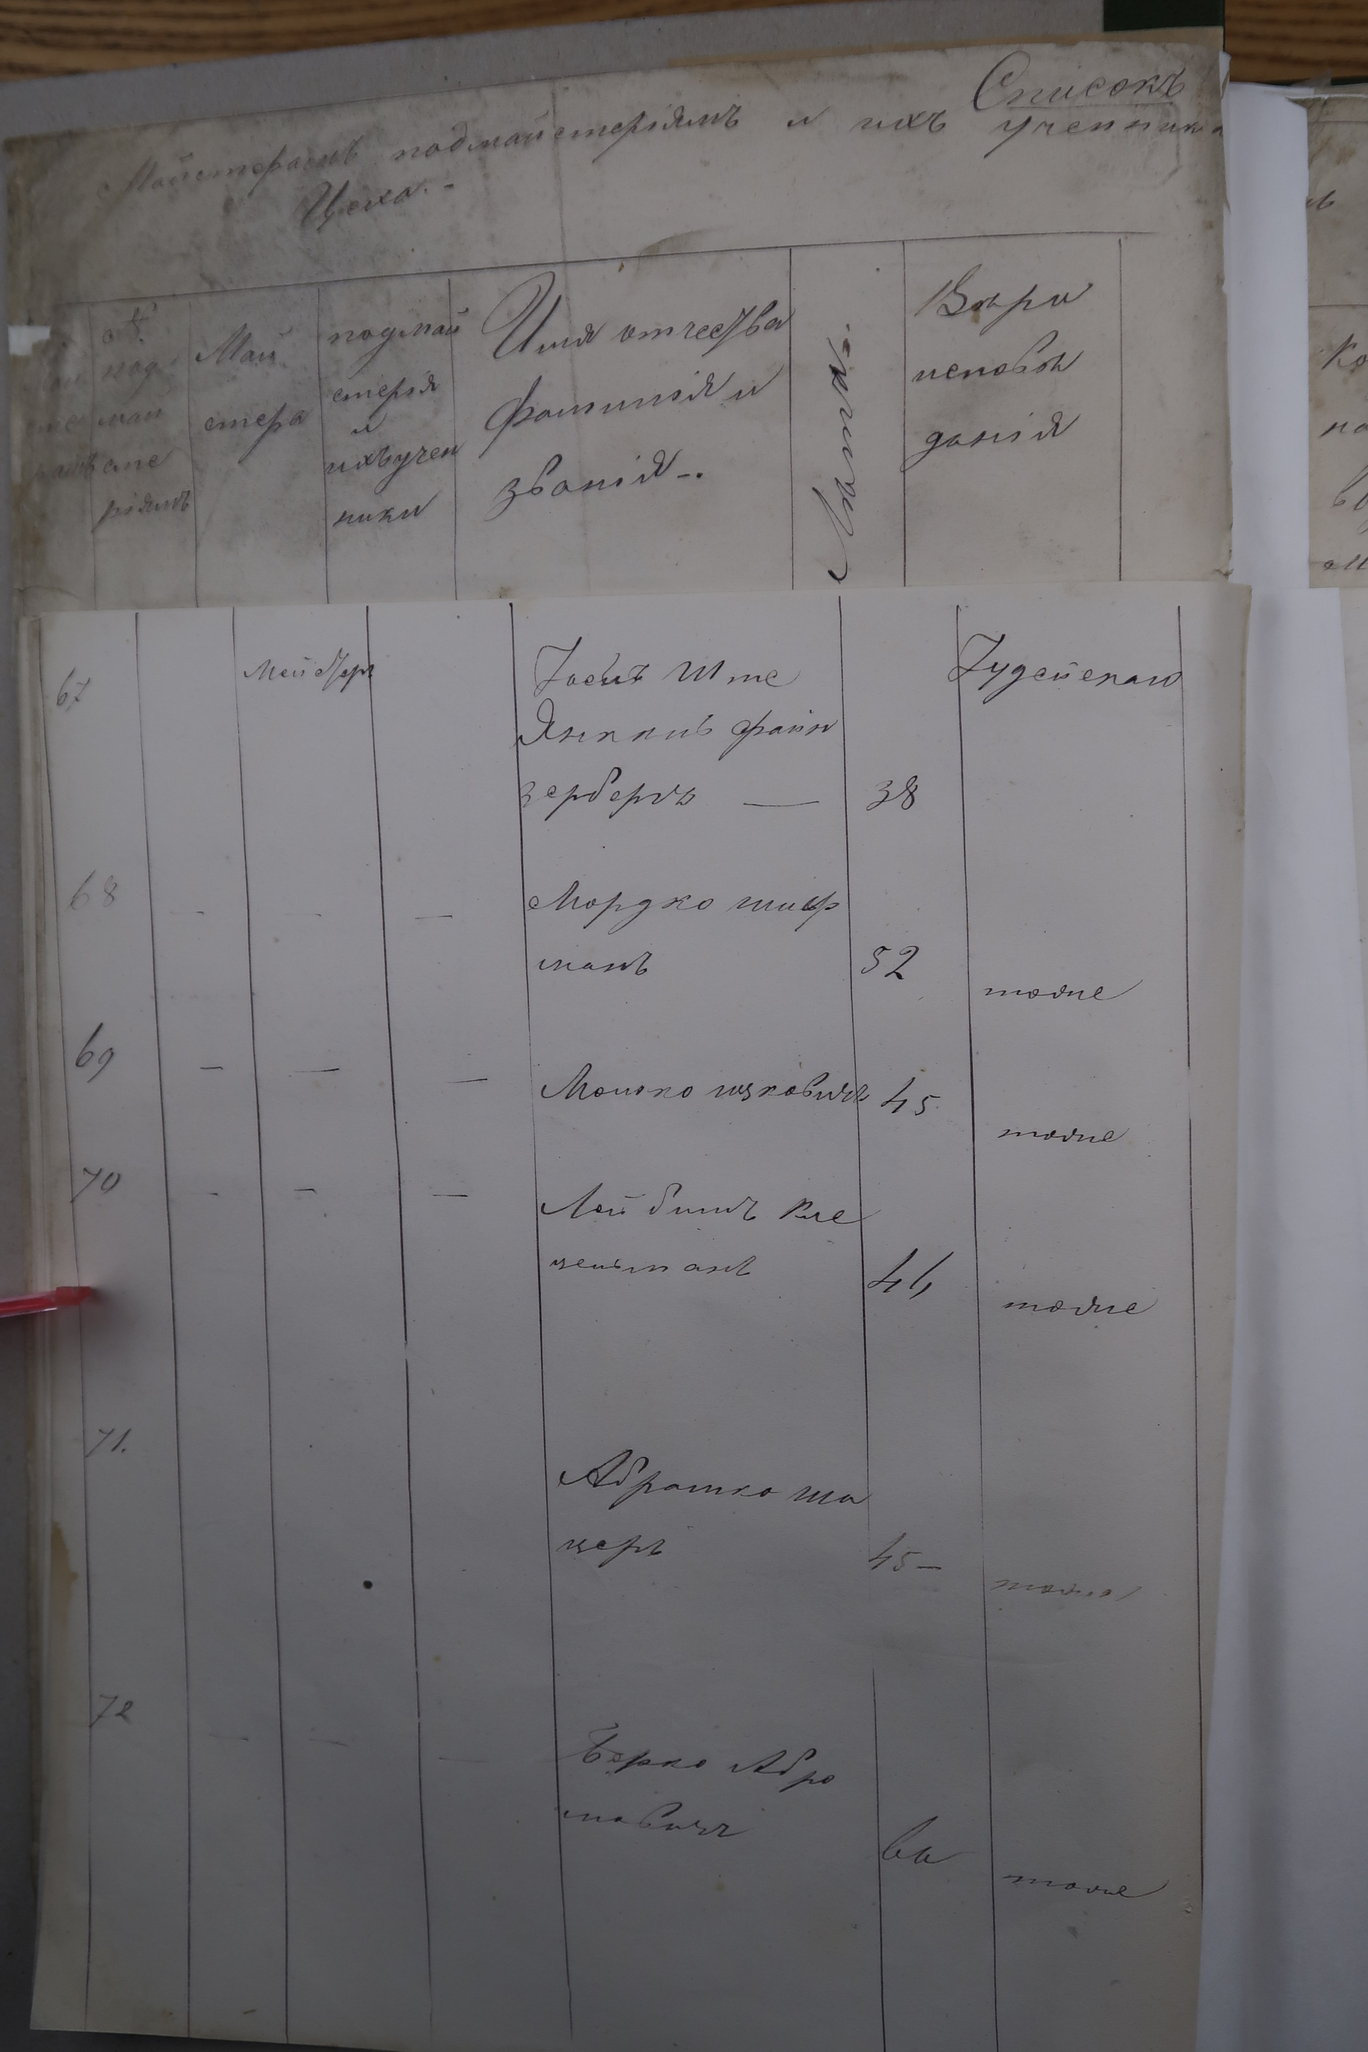 Списокъ
Майстерамъ подмайстеріямъ и ихъ ученика
Цеха.-
№
под
май
сте
ріямъ
Май
стера
подмай
стерія
и
ихъ учен
ники
Имя отчества
фамилія и
званія -.
Лѣта
Вѣри
исповѣ
данія
67 Майстеръ
Іосиъ Шмe
Янкель файн
зербергъ — 38
Іудейскаго
68 — — — Мордко шиф
манъ 52 тоже
69 — — — Мошко ицковичъ 45 тоже
70 - — — Лейбишъ Кле
цельманъ 44 тоже
71. Абрамко ша
церъ 45 — тоже
72 — — — Берко Абра
мовичъ тоже